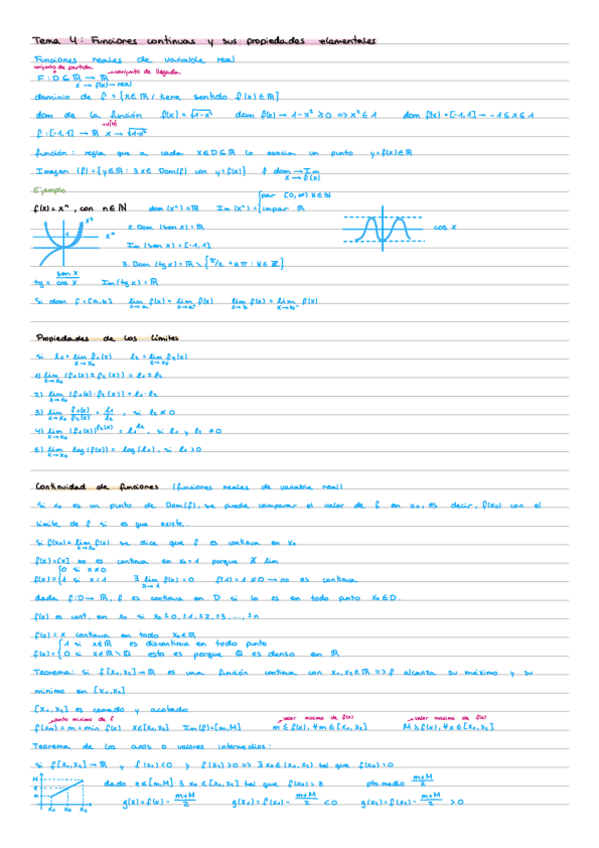 Tema 4: Funciones continuas y sus propiedades elementales
Funciones reales de variable real
conjunto de partida
conjunto de llegada
F: D ⊆ ℝ → ℝ
x → f(x) → real
dominio de f = {x ∈ ℝ / tiene sentido f(x) ∈ ℝ}
dom de la función f(x) = √1-x² dom f(x) → 1-x² ≥ 0 => x² ≤ 1 dom f(x) = [-1,1] → -1 ≤ x ≤ 1
f: [-1,1] → ℝ x → √1-x²
función: regla que a cada x ∈ D ⊆ ℝ lo asocia un punto y = f(x) ∈ ℝ
Imagen (f) = {y ∈ ℝ : ∃ x ∈ Dom(f) con y = f(x)} f dom → Im
x → f(x)
Ejemplo
f(x) = xⁿ, con n ∈ ℕ dom (xⁿ) = ℝ Im (xⁿ) = { par [0,∞)
impar ℝ
x² x³ cos x
2. Dom (sen x) = ℝ
Im (sen x) = [-1,1]
3. Dom (tg x) = ℝ \ {π/2 + kπ : k ∈ ℤ}
tg = sen x / cos x Im (tg x) = ℝ
Si dom f = [a,b] lim x→a f(x) = lim x→a⁺ f(x) lim x→b f(x) = lim x→b⁻ f(x)
Propiedades de los límites
si l₁ = lim x→x₀ f₁(x) l₂ = lim x→x₀ f₂(x)
1) lim x→x₀ (f₁(x) ± f₂(x)) = l₁ ± l₂
2) lim x→x₀ (f₁(x) · f₂(x)) = l₁ · l₂
3) lim x→x₀ f₁(x)/f₂(x) = l₁/l₂, si l₂ ≠ 0
4) lim x→x₀ (f₁(x))^f₂(x) = l₁^l₂, si l₁ y l₂ ≠ 0
5) lim x→x₀ log(f(x)) = log(l₁), si l₁ > 0
Continuidad de funciones (funciones reales de variable real)
Si x₀ es un punto de Dom(f), se puede comparar el valor de f en x₀, es decir, f(x₀) con el
límite de f si es que existe.
Si f(x₀) = lim x→x₀ f(x) se dice que f es continua en x₀
f(x) = [x] no es continua en x₀ = 1 porque ∄ lim
f(x) = { 0 si x ≠ 0
1 si x = 1 ∃ lim x→1 f(x) = 0 f(1) = 1 ≠ 0 → no es continua
dada f: D → ℝ, f es continua en D si lo es en todo punto x₀ ∈ D.
f(x) es cont. en x₀ si x₀ ≠ 0, ±1, ±2, ±3, ..., ±n
f(x) = x continua en todo x₀ ∈ ℝ
f(x) = { 1 si x ∈ ℝ es discontinua en todo punto
0 si x ∈ ℝ \ ℚ esto es porque ℚ es denso en ℝ
Teorema: si f [x₁,x₂] → ℝ es una función continua con x₁,x₂ ∈ ℝ => f alcanza su máximo y su
mínimo en [x₁,x₂]
[x₁,x₂] es cerrado y acotado
punto mínimo de f
valor mínimo de f(x)
valor maximo de f(x)
f(xₘ) = m = min f(x) x ∈ [x₁,x₂] Im(f) = [m,M] m ≤ f(x), ∀x ∈ [x₁,x₂] M ≥ f(x), ∀x ∈ [x₁,x₂]
Teorema de los ceros o valores intermedios:
si f [x₁,x₂] → ℝ y f(x₁) < 0 y f(x₂) > 0 => ∃ x₀ ∈ (x₁,x₂) tal que f(x₀) = 0
M
z
m
x₁ x₀ x₂
dado z ∈ [m,M] ∃ x₀ ∈ [x₁,x₂] tal que f(x₀) = z pto medio m+M/2
g(x) = f(x) - m+M/2 g(x₁) = f(x₁) - m+M/2 < 0 g(x₂) = f(x₂) - m+M/2 > 0